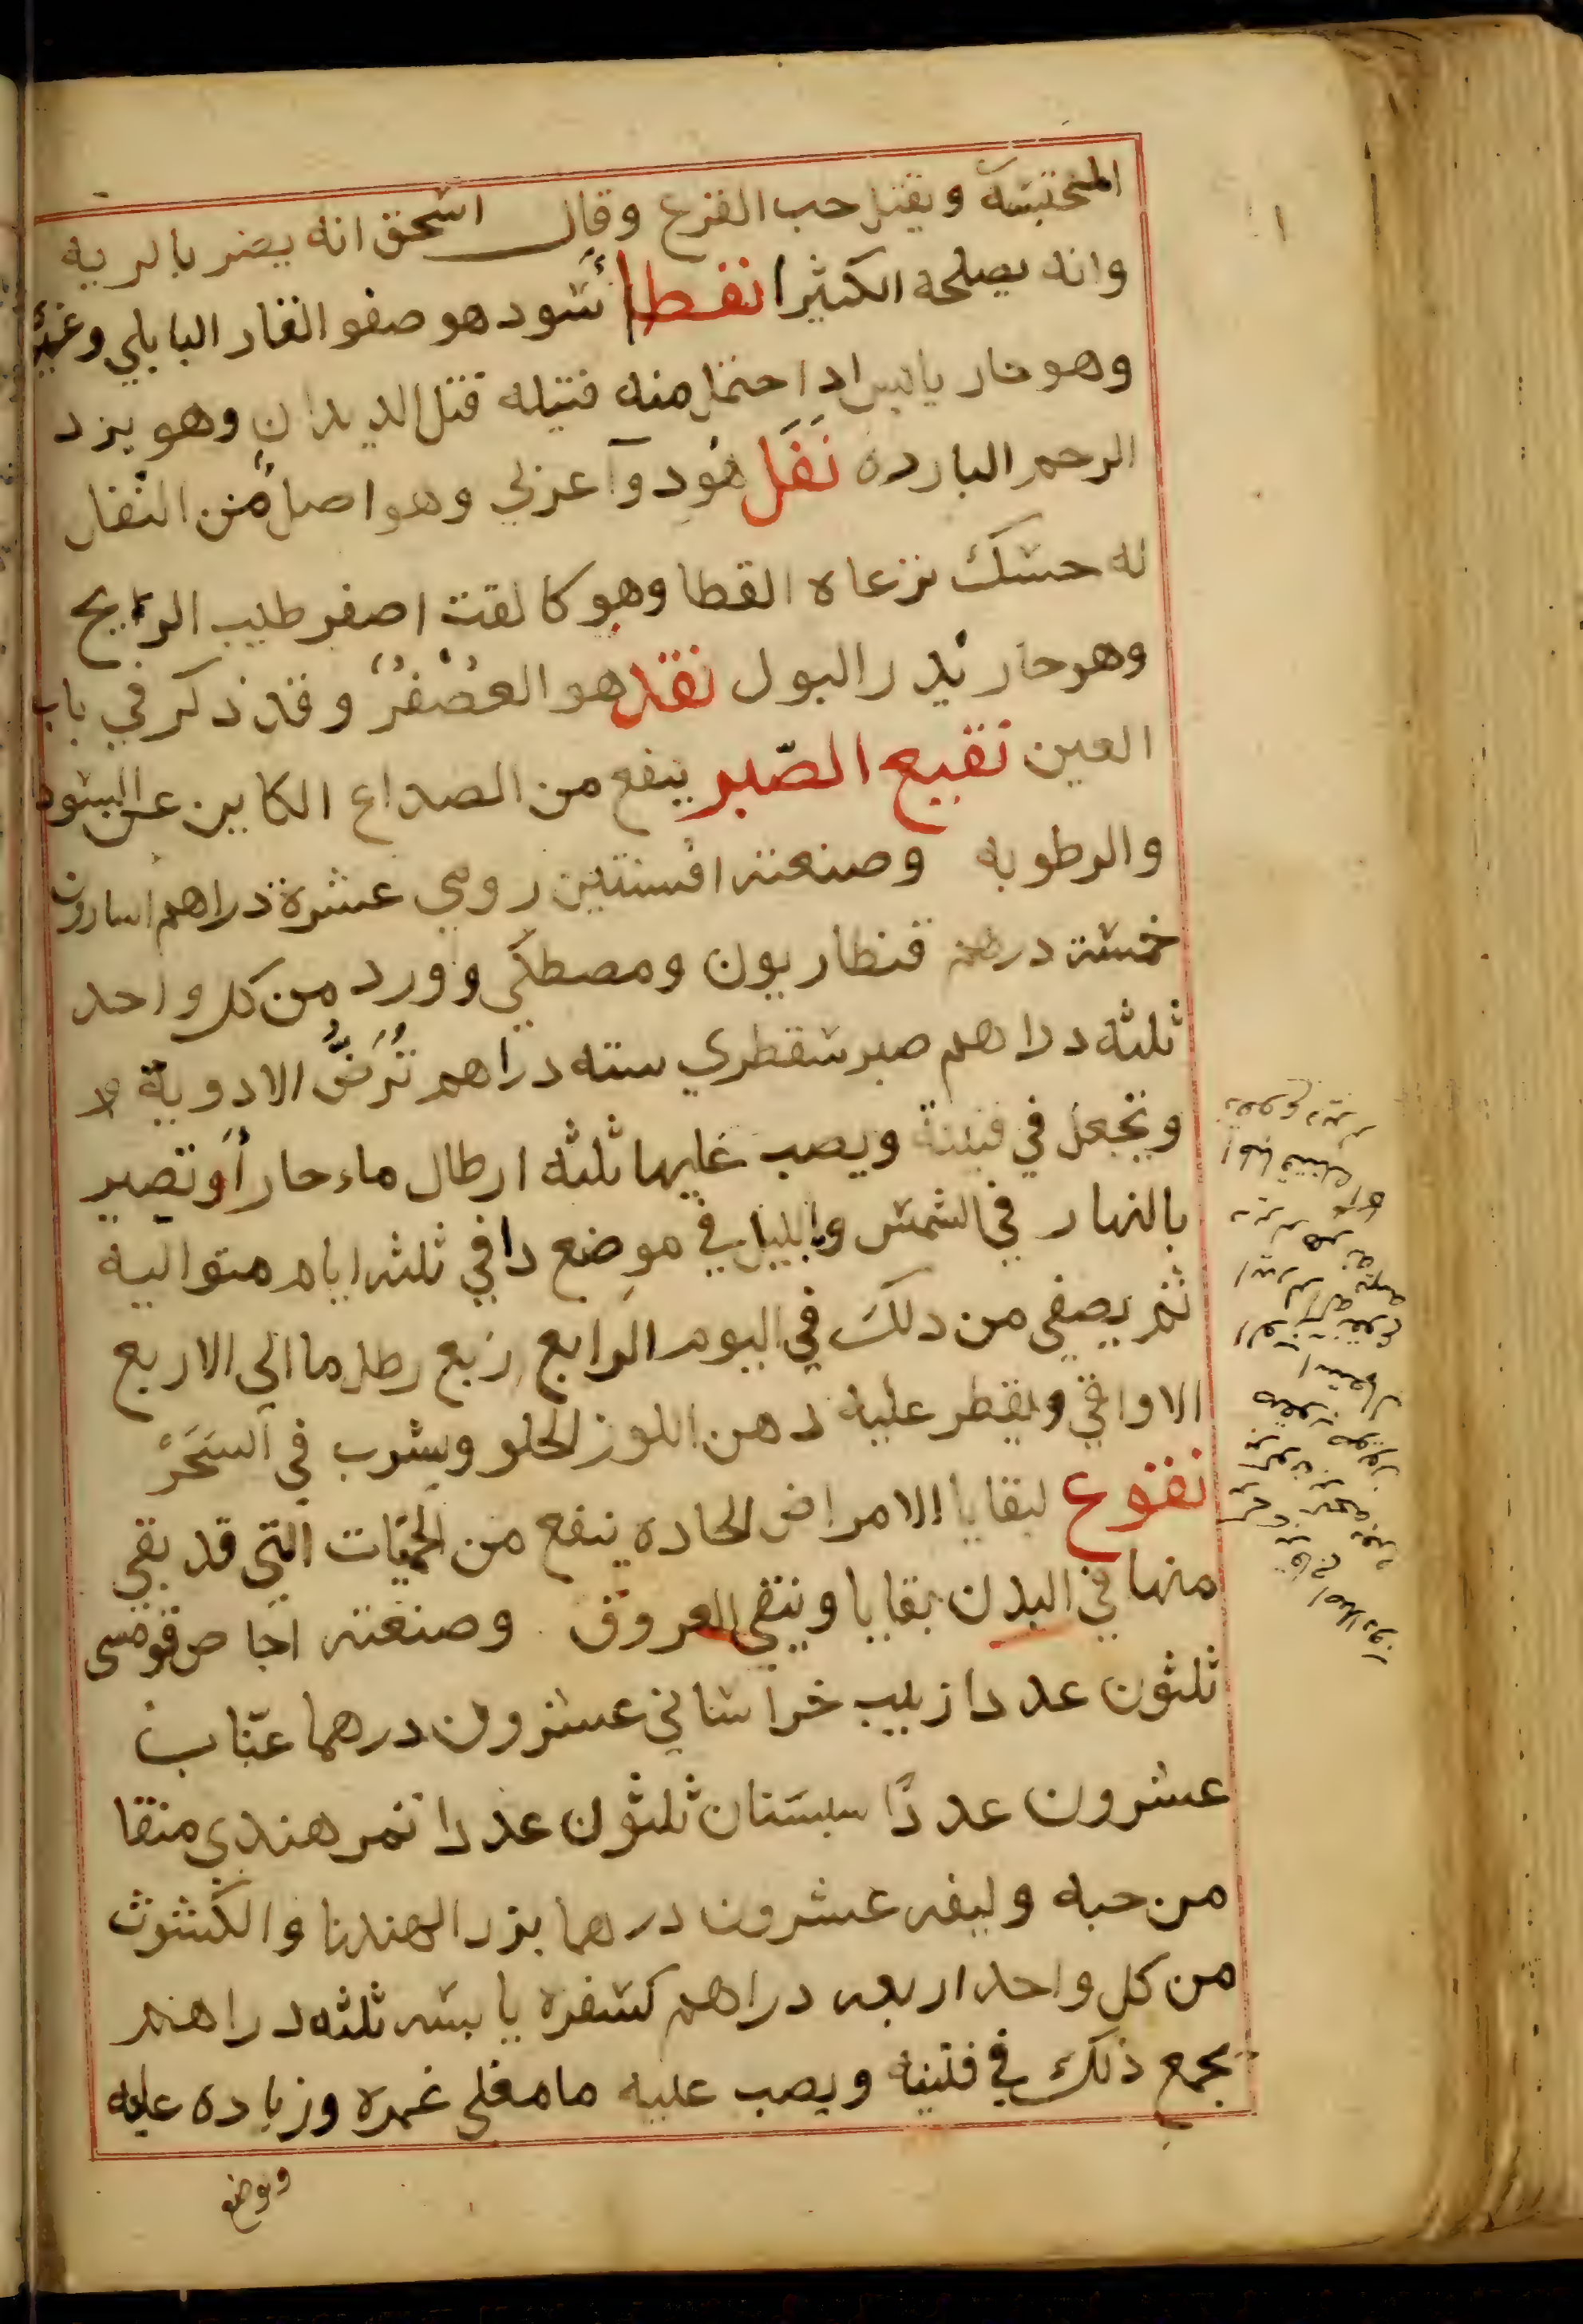 المنحتبسه ويقتل حب القرع وقال اسحق انه يضر بالريه
وانه يصلحه الكثيرا نفط اسود هو صفو القار البابلي وغيره
وهو حار يابس اذا احتمل منه فتيله قتل الديدان وهو يزد
الرحم البارده نَفَل هُودوآ عربي وهو اصل من النفل
له حسك ترعاه القطا وهو كالقت اصفر طيب الرايح
وهو حار يدر البول نقد هو العُصْفُر وقد ذكر في باب
العين نقيع الصّبر ينفع من الصداع الكاين عن السود
والرطوبه وصنعته افسنتين رومي عشرة دراهم اسارون
خمسة درهم قنطاريون ومصطكي وورد من كل واحد
ثلثه دراهم صبر سقطري سته دراهم تُرَضُّ الادوية
وتجعل في قنينة ويصب عليها ثلثه ارطال ماء حار أو تصير
بالنهار في الشمس وبالليل في موضع دافي ثلثه ايام متواليه
ثم يصفي من ذلك في اليوم الرابع ربع رطل ما الي الاربع
الاواقي ويقطر عليه دهن اللوز الحلو ويشرب في السَحَرْ
نقوع لبقايا الامراض الحاده ينفع من الحميّات التي قد بقي
منها في البدن بقايا وينقي العروق وصنعته اجاص قومسى
ثلثون عددا زبيب خراساني عشرون درهما عنّاب
عشرون عددًا سبستان ثلثون عددا تمر هندي منقا
من حبه وليفه عشرون درهما بزر الهندبا والكشوث
من كل واحد اربعه دراهم كسفره يابسه ثلثه دراهم
يجمع ذلك في قنينه ويصب عليه ما مغلي غمره وزياده عليه
ويوضع